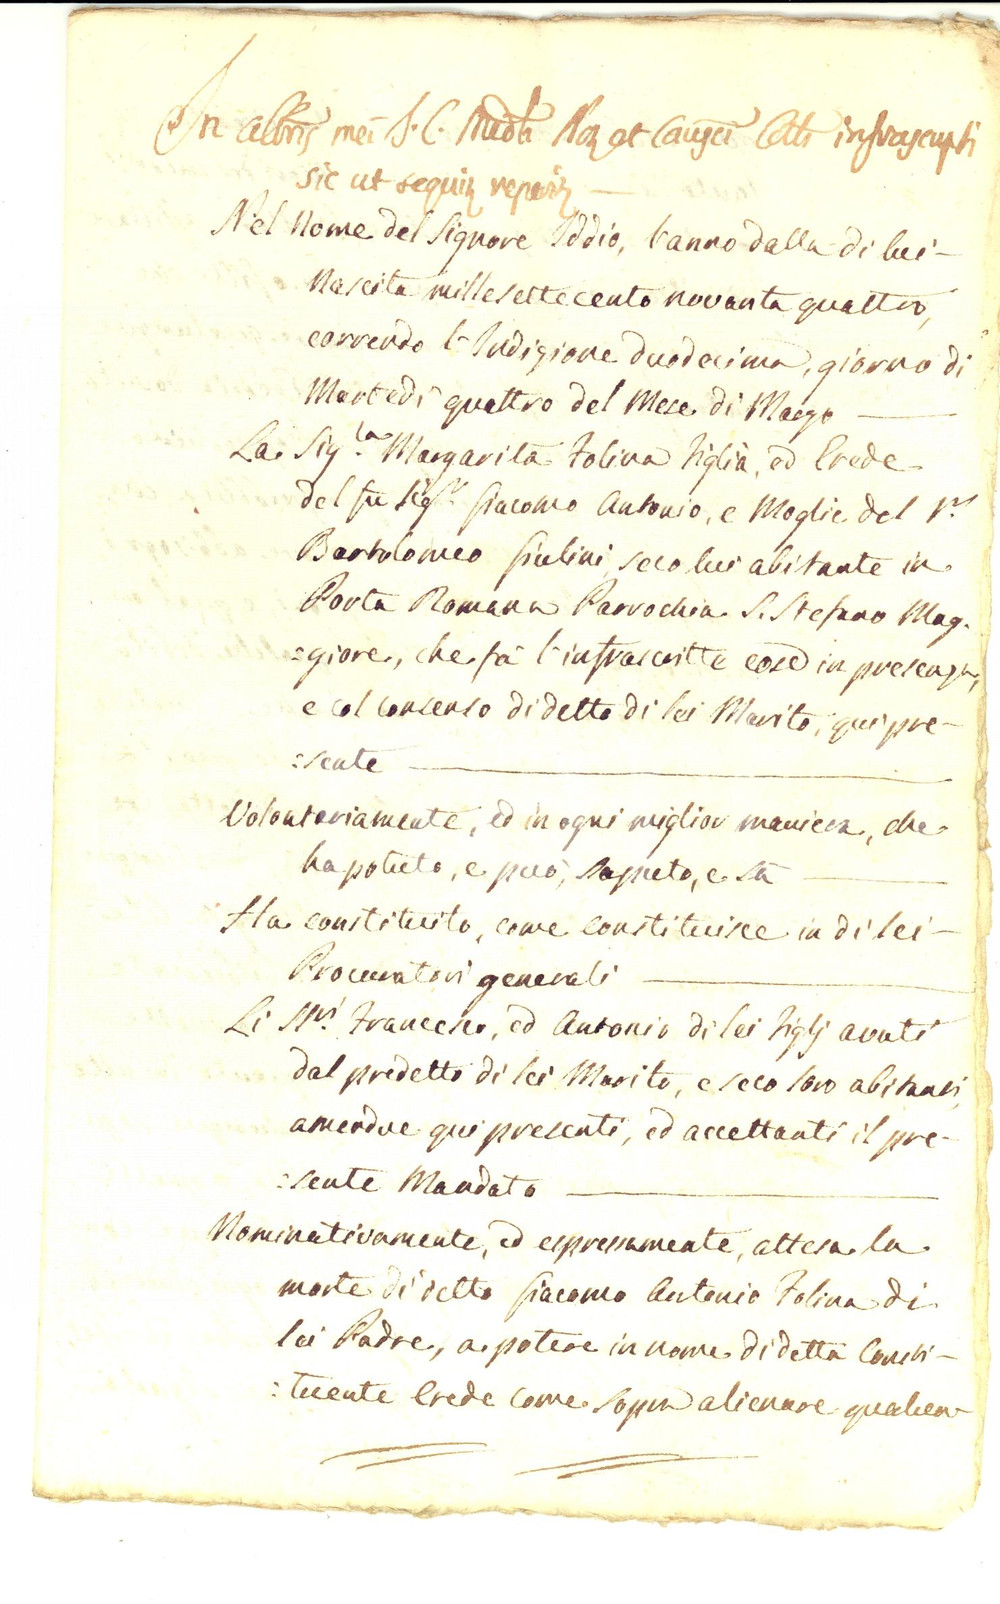 In
mei J. C. et infrascripti
sic ut sequit.
Nel Nome del Signore Iddio, l'anno dalla di lui
Nascita millesettecento novanta quattro,
correndo l'Indizione duodecima, giorno di
Martedì quattro del Mese di Marzo
La Sig.ra Margarita Folina figlia, ed Erede
del fu Sig.r Giacomo Antonio, e Moglie del S.r
Bartolomeo Giulini, seco lui abitante in
Porta Romana Parrochia S. Stefano Mag-
:giore, che fà l'infrascritte cose in presenza,
e col consenso di detto di lei Marito, qui pre-
:sente
Volontariamente, ed in ogni miglior maniera, che
ha potuto, e può, saputo, e sà
Ha constituito, come constituisce in di lei
Procuratori generali
Li SS.ri Francesco, ed Antonio di lei figlj avuti
dal predetto di lei Marito, e seco loro abitanti,
amendue qui presenti, ed accettanti il pre-
:sente Mandato
Nominativamente, ed espressamente, attesa la
morte di detto Giacomo Antonio Folina di
lei Padre, a potere in nome di detta Consti-
:tuente Erede come sopra alienare qualun-